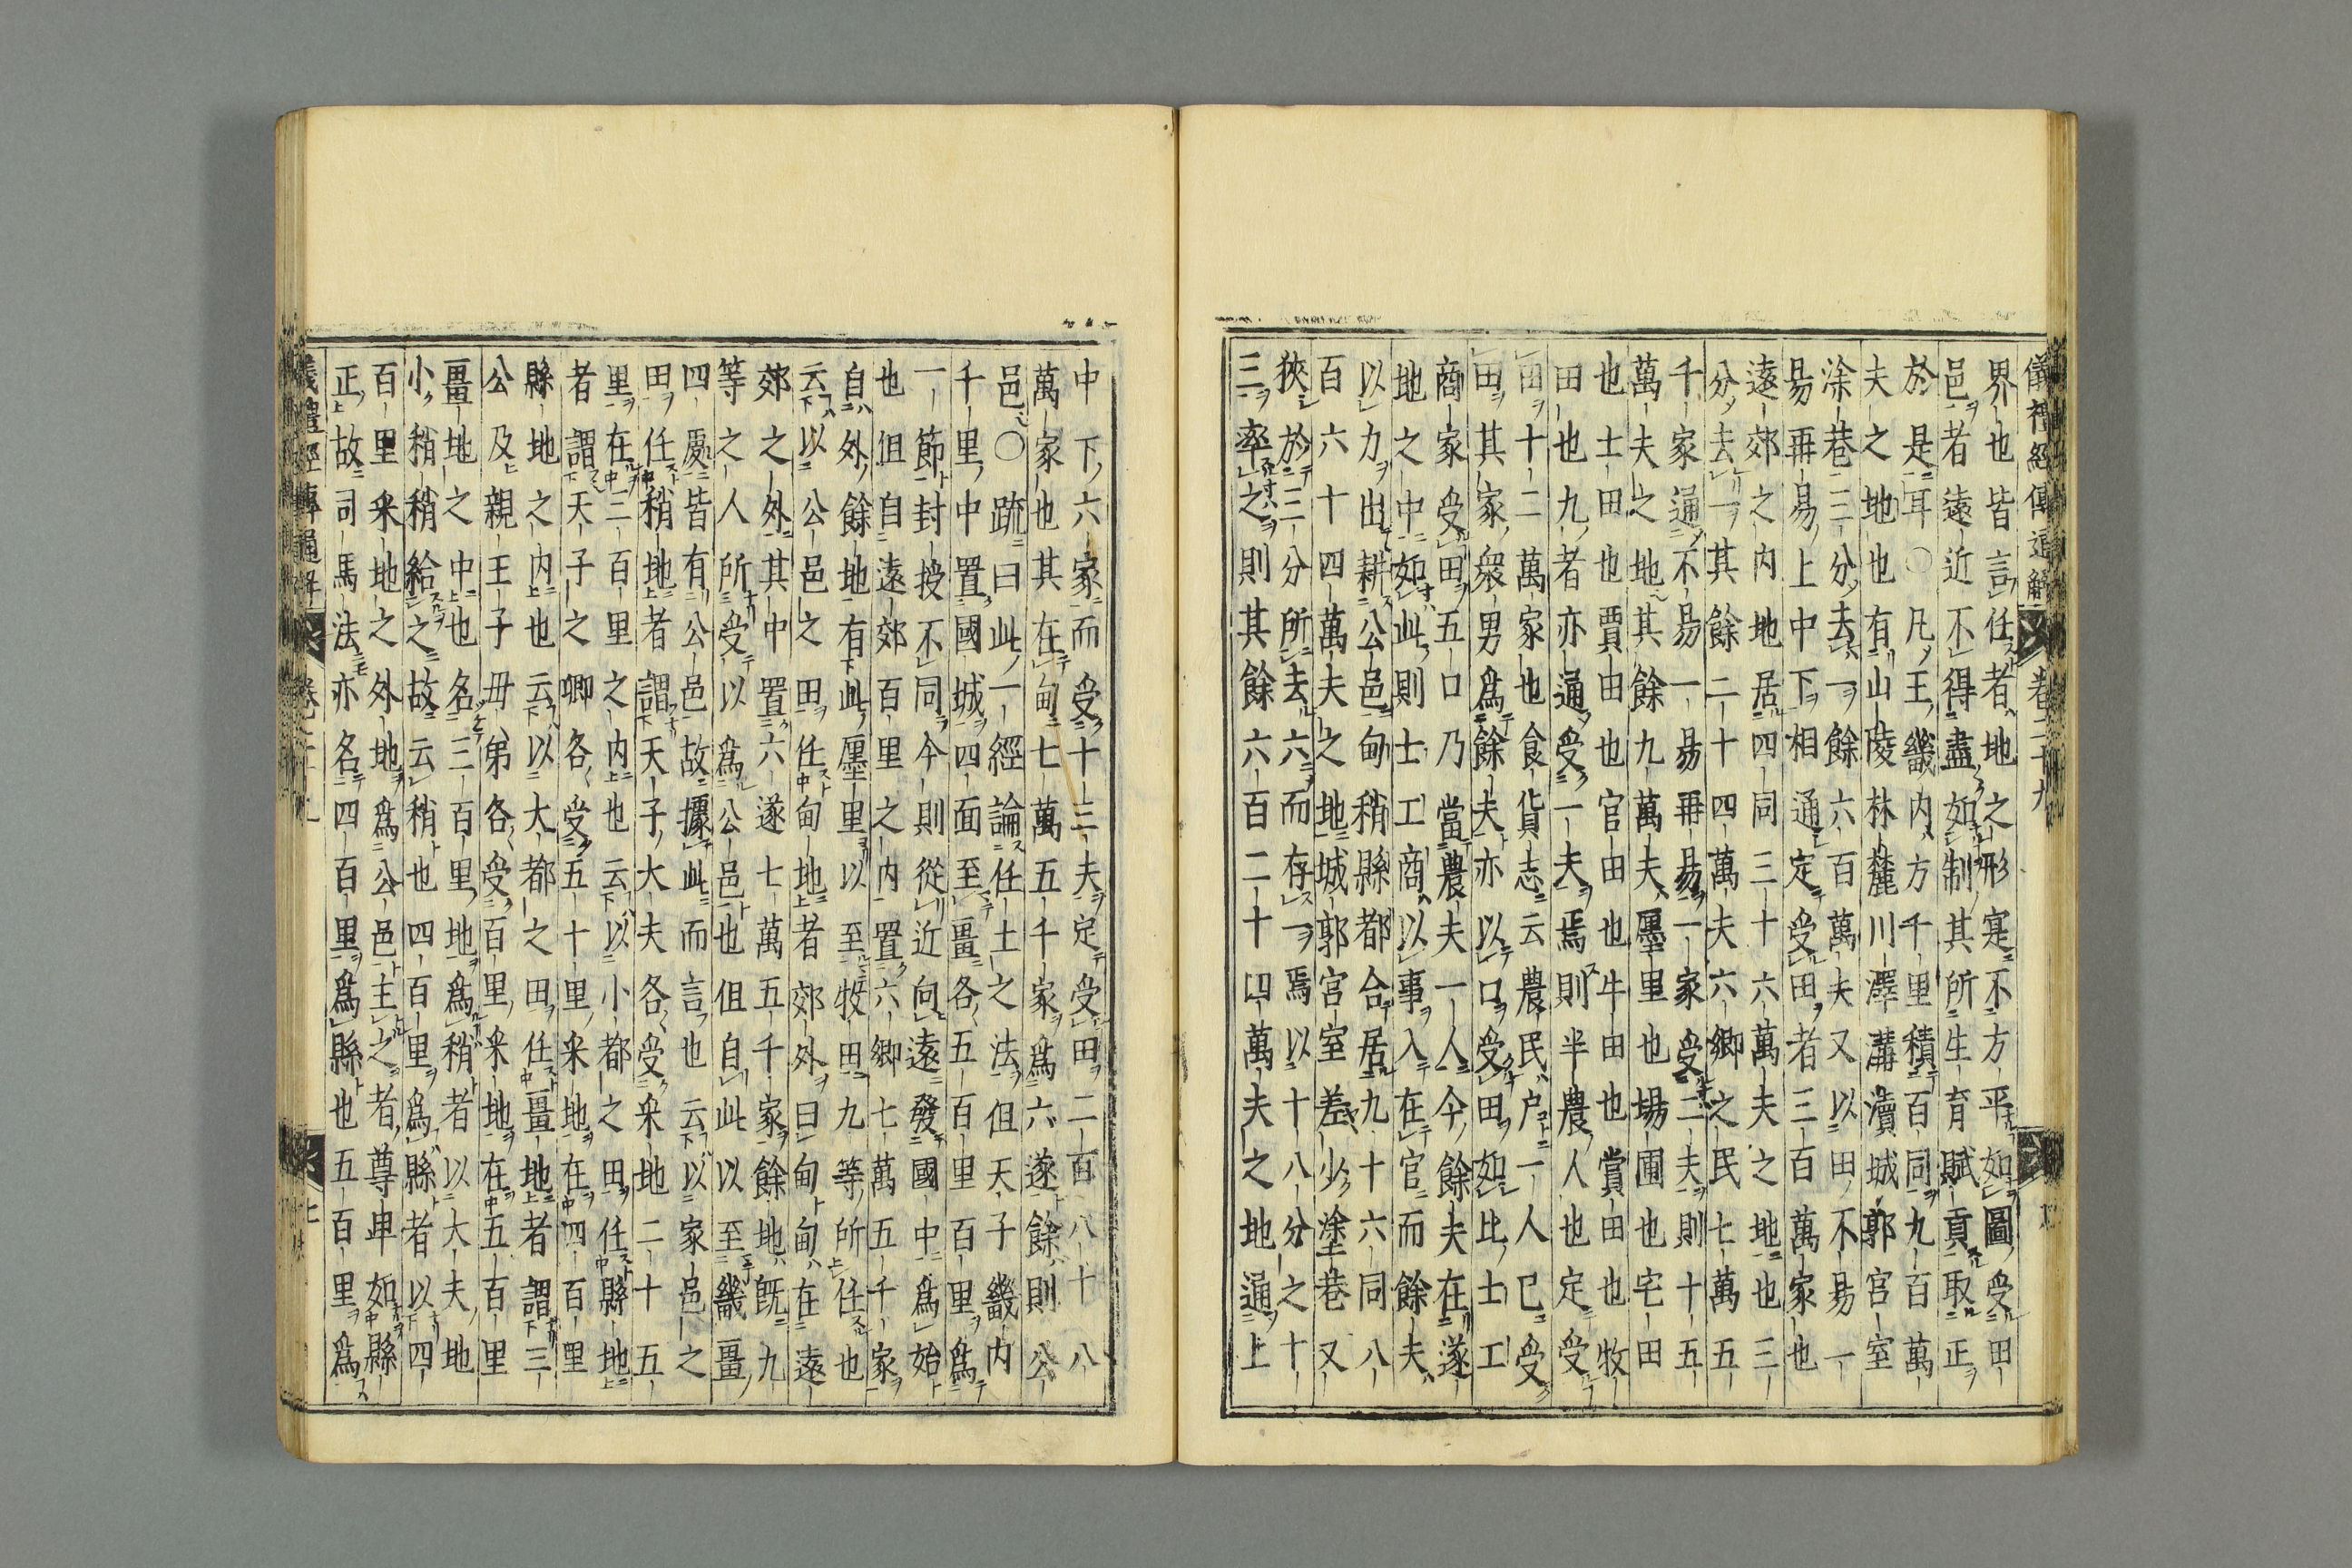 儀禮經傳通解 卷二十九
界也皆言任者地之形寔不方平如圖受田
邑者遠近不得盡如制其所生育賦貢取正
於是耳〇凡王畿内方千里積百同九百萬
夫之地也有山陵林麓川澤溝瀆城郭宮室
涂巷三分去一餘六百萬夫又以田不易一
易再易上中下相通定受田者三百萬家也
遠郊之内地居四同三十六萬夫之地也三
分去一其餘二十四萬夫六鄉之民七萬五
千家通不易一易再易一家受二夫則十五
萬夫之地其餘九萬夫廛里也場圃也宅田
也士田也賈田也官田也牛田也賞田也牧
田也九者亦通受一夫焉則半農人也定受
田十二萬家也食貨志云農民户一人已受
田其家衆男爲餘夫亦以口受田如比士工
商家受田五口乃當農夫一人今餘夫在遂
地之中如此則士工商以事入在官而餘夫
以力出耕公邑甸稍縣都合居九十六同八
百六十四萬夫之地城郭宮室差少塗巷又
狹於三分所去六而存一焉以十八分之十
三率之則其餘六百二十四萬夫之地通上
中下六家而受十三夫定受田二百八十八
萬家也其在甸七萬五千家爲六遂餘則公
邑〇疏曰此一經論任土之法但天子畿内
千里中置國城四面至畺各五百里百里爲
一節封授不同今則從近向遠發國中爲始
也但自遠郊百里之内置六鄉七萬五千家
自外餘地有此廛里以至牧田九等所任也
云以公邑之田任甸地者郊外曰甸甸在遠
郊之外其中置六遂七萬五千家餘地既九
等之人所受以爲公邑也但自此以至畿畺
四處皆有公邑故據此而言也云以家邑之
田任稍地者謂天子大夫各受采地二十五
里在三百里之内也云以小都之田任縣地
者謂天子之卿各受五十里采地在四百里
縣地之内也云以大都之田任畺地者謂三
公及親王子毋弟各受百里采地在五百里
畺地之中也名三百里地爲稍者以大夫地
小稍稍給之故云稍也四百里爲縣者以四
百里采地之外地爲公邑主之者尊卑如縣
正故司馬法亦名四百里爲縣也五百里爲